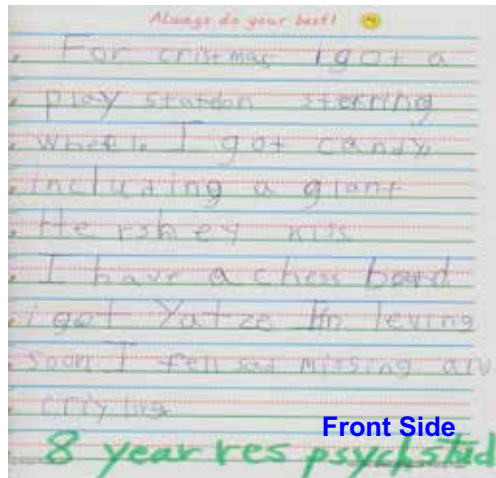 Always do your best!
For cristmas I got a
play station sterring
wheele I got candy
including a giant
Hershey kiss
I have a chess board
i got Yatze Im leving
soon I fell sad missing
Front Side
8 year res psych stud